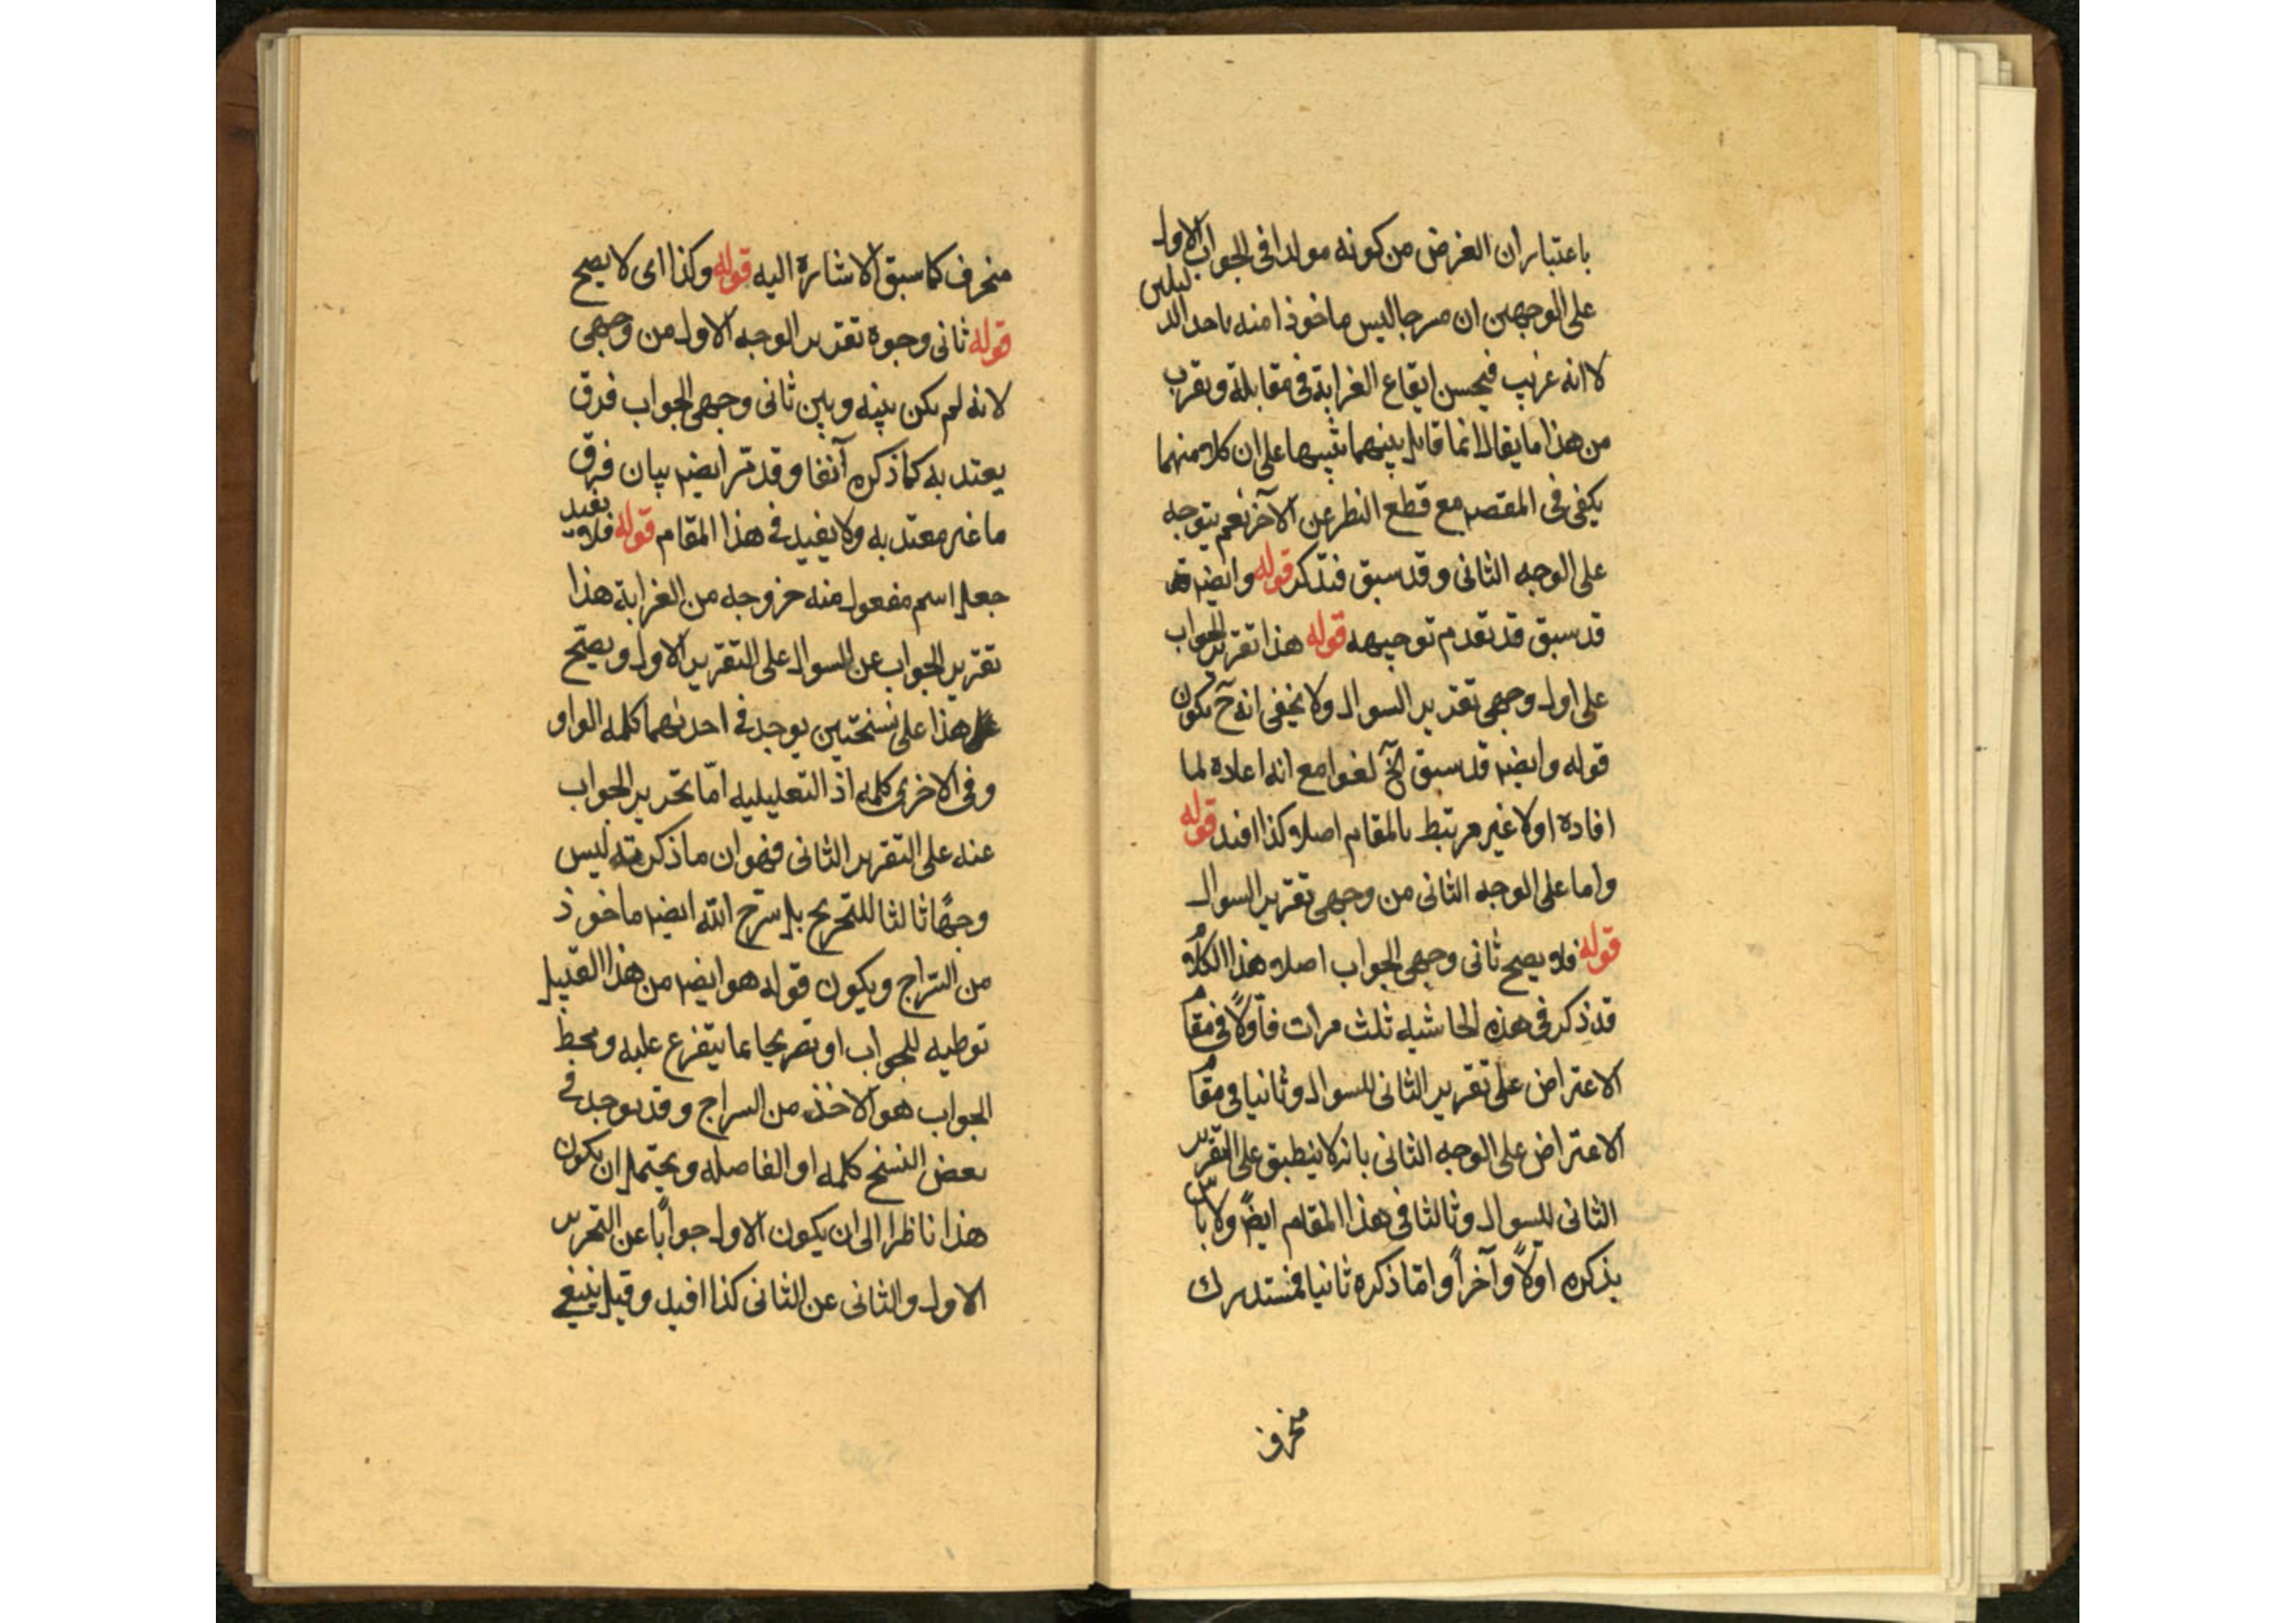 باعتبار ان الغرض من كونه مولدا فى الجواب الاول
على الوجهين ان مسرجا ليس ماخوذا منه باحد الدليلين
لا انه غريب فيحسن ايقاع الغرابة فى مقابلة ويقرب
من هذا ما يقال انما قابل بينهما تنبيها على ان كلا منهما
يكفى فى المقصد مع قطع النظر عن الآخر نعم يتوجه
على الوجه الثانى وقد سبق فتذكر قوله وايضا
قد سبق قد تقدم توجيهه قوله هذا تقرير الجواب
على اول وجهى تقدير السوال ولا يخفى انه ح يكون
قوله وايضا قد سبق الخ لغوا مع انه اعادة لما
افاده اولا غير مرتبط بالمقام اصلا كذا افيد قوله
واما على الوجه الثانى من وجهى تقرير السوال
قوله فلا يصح ثانى وجهى الجواب اصلا هذا الكلام
قد ذكر فى هذه الحاشيه ثلث مرات فاولًا فى مقام
الاعتراض على تقرير الثانى للسوال وثانيا فى مقام
الاعتراض على الوجه الثانى بانه لا ينطبق على التقرير
الثانى للسوال وثالثا فى هذا المقام ايضًا ولا باس
بذكره اولًا وآخرًا وامّا ذكره ثانيا فمستدرك
منحرف
منحرف كما سبق الاشارة اليه قوله وكذا اى لا يصح
قوله ثانى وجوه تقدير الوجه الاول من وجهى
لانه لم يكن بينه وبين ثانى وجهى الجواب فرق
يعتد به كما ذكره آنفا وقد مّر ايضا بيان فرق
ما غير معتد به ولا يفيد فى هذا المقام قوله فلا يفيد
جعل اسم مفعول منه خروجه من الغرابة هذا
تقرير الجواب عن السوال على التقرير الاول ويصّح
هذا على نسختين يوجد فى احدىهما كلمه الواو
وفى الاخرى كلمه اذ التعليليه امّا تحرير الجواب
عنه على التقرير الثانى فهو ان ما ذكرته ليس
وجهًا ثالثا للتخريج بل سرّج الله ايضا ماخوذ
من السّراج ويكون قوله هو ايضا من هذا القبيل
توطيه للجواب او تصريحا عما يتفرع عليه ومحط
الجواب هو الاخذ من السراج وقد يوجد فى
بعض النسخ كلمه او الفاصله ويحتمل ان يكون
هذا ناظرا الى ان يكون الاول جوابًا عن التحرير
الاول والثانى عن الثانى كذا افيد وقيل ينبغى